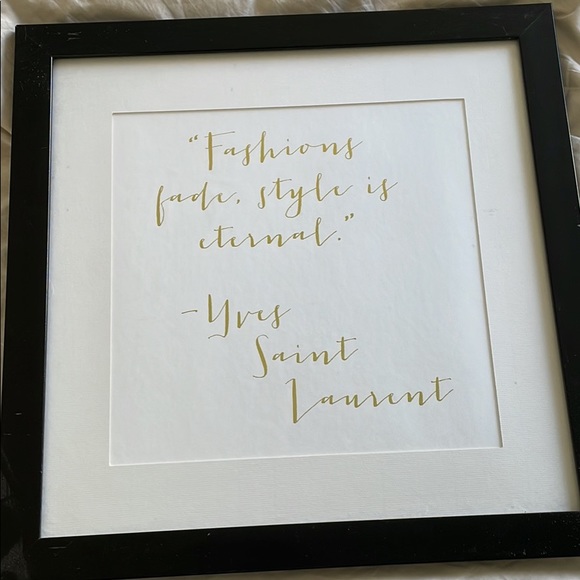 “Fashions
fade, style is
eternal.”
- Yves
Saint
Laurent